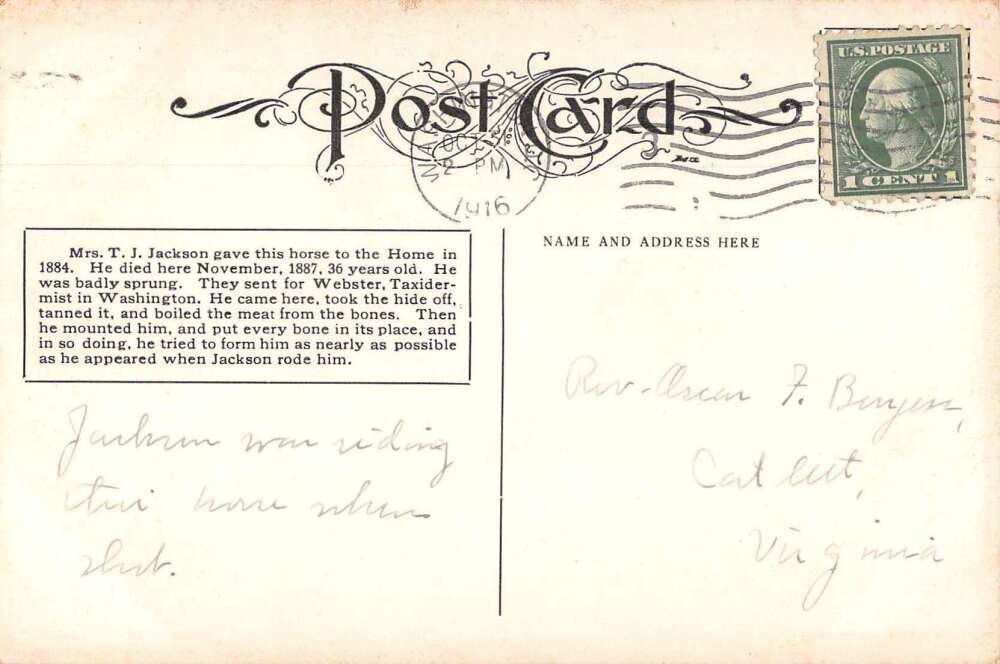 Post Card
OCT
2 PM
1916
U.S. POSTAGE
1 CENT 1
Mrs. T. J. Jackson gave this horse to the Home in
1884. He died here November, 1887, 36 years old. He
was badly sprung. They sent for Webster, Taxider-
mist in Washington. He came here, took the hide off,
tanned it, and boiled the meat from the bones. Then
he mounted him, and put every bone in its place, and
in so doing, he tried to form him as nearly as possible
as he appeared when Jackson rode him.
NAME AND ADDRESS HERE
Jackson was riding
this horse when
shot.
Rev. Oscar F. Burgess,
Catlett,
Virginia